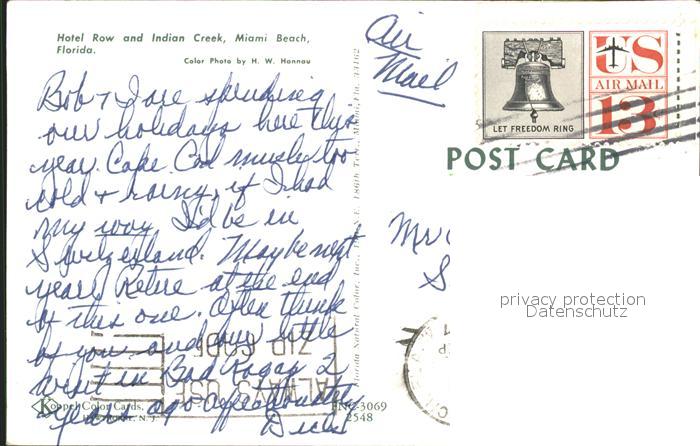 Hotel Row and Indian Creek, Miami Beach,
Florida.
Color Photo by H. W. Hannau
Bob + I are spending
our holidays here this
year. Cape Cod much too
cold + rainy, if I had
my way I'd be in
Switzerland. Maybe next
year. Retire at the end
of this one. Often think
of you and our little
visit in Bad Ragaz 2
years ago. Affectionately
Koppel Color Cards,
FNC-3069
2548
Air
Mail
LET FREEDOM RING
US
AIR MAIL
13
POST CARD
Mr
S
privacy protection
Datenschutz
ALWAYS USE
ZIP CODE